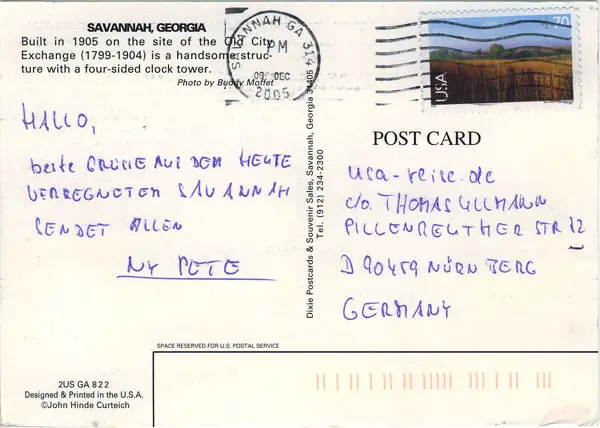 SAVANNAH, GEORGIA
Built in 1905 on the site of the Old City
Exchange (1799-1904) is a handsome struc-
ture with a four-sided clock tower.
Photo by Buddy Moffet
SAVANNAH GA 314
PM
09 DEC
2005
70
USA
HALLO,
beste GRÜßE AUS DEM HEUTE
VERREGNETEN SAVANNAH
SENDET ALLEN
NY PETE
Dixie Postcards & Souvenir Sales, Savannah, Georgia 31405
Tel. (912) 234-2300
POST CARD
usa-reise.de
c/o. THOMAS ULLMANN
PILLENREUTHER STR 12
D 90459 NÜRNBERG
GERMANY
SPACE RESERVED FOR U.S. POSTAL SERVICE
2US GA 822
Designed & Printed in the U.S.A.
©John Hinde Curteich